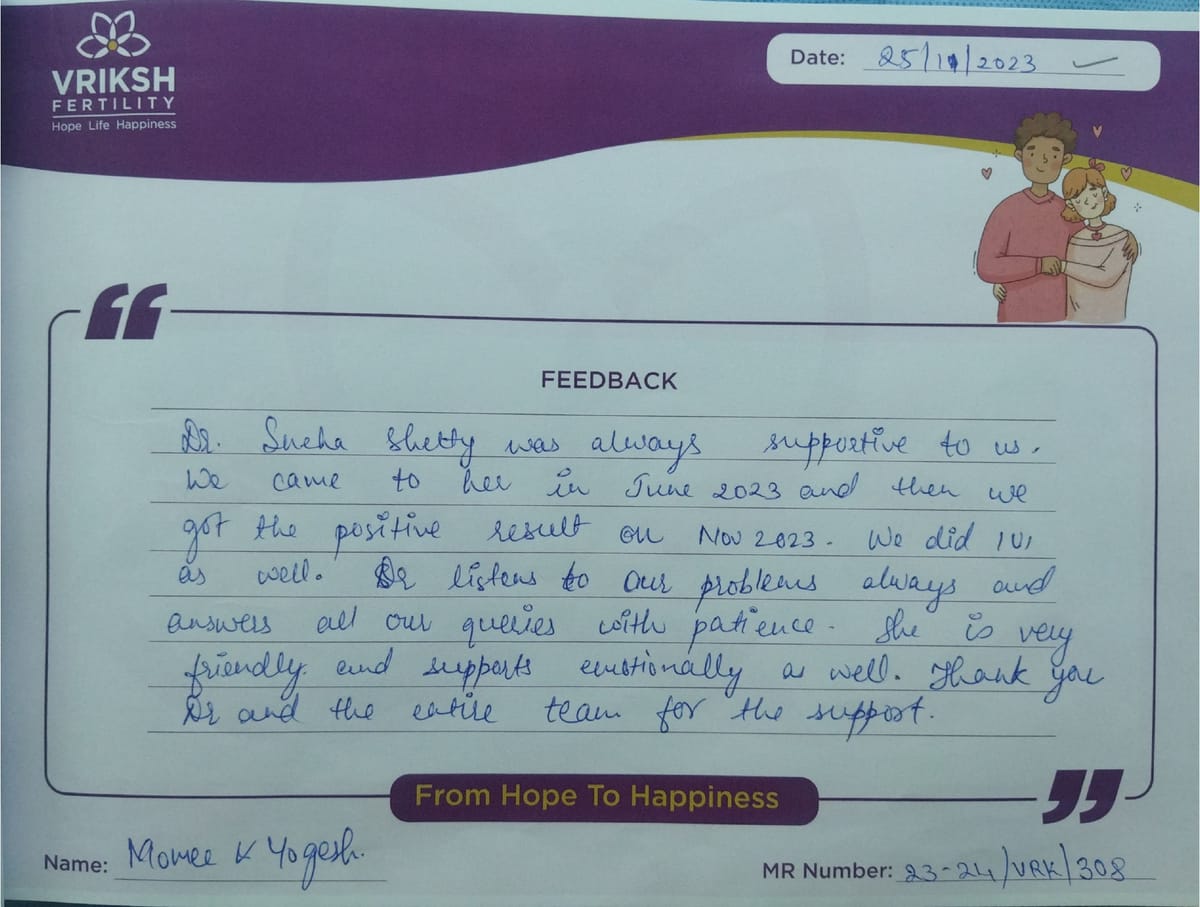 VRIKSH
FERTILITY
Hope Life Happiness
Date: 25/11/2023
FEEDBACK
Dr. Sneha Shetty was always supportive to us.
We came to her in June 2023 and then we
got the positive result on Nov 2023. We did IUI
as well. Dr listens to our problems always and
answers all our queries with patience. She is very
friendly. and supports emotionally as well. Thank you
Dr and the entire team for the support.
From Hope To Happiness
Name: Yogesh.
MR Number: 23-24/VRK/308